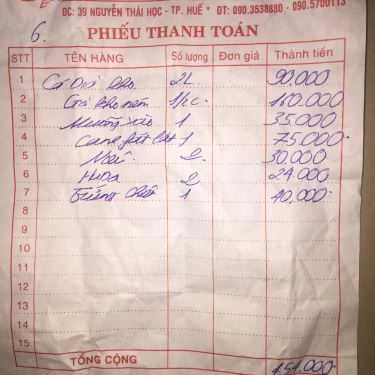 ĐC: 39 NGUYỄN THÁI HỌC - TP. HUẾ * ĐT: 090.3538880 - 090.5700113
6. PHIẾU THANH TOÁN
STT TÊN HÀNG Số lượng Đơn giá Thành tiền
1 kho 2L 90.000
2 Gà kho nấm 160.000
3 Muống xào 1 35.000
4 Canh 1 75.000
5 2 30.000
6 Huda 2 24.000
7 Trứng chiên 1 40.000
8
9
10
11
12
13
14
15
TỔNG CỘNG 454.000